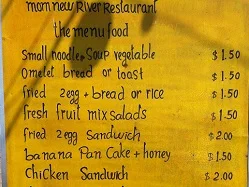 mom new River Restaurant
the menu food
Small noodles Soup vegetable $1.50
omelet bread or toast $1.50
fried 2egg + bread or rice $1.50
fresh fruit mix salads $1.50
fried 2egg Sandwich $2.00
banana Pan Cake + honey $1.50
Chicken Sandwich $2.00